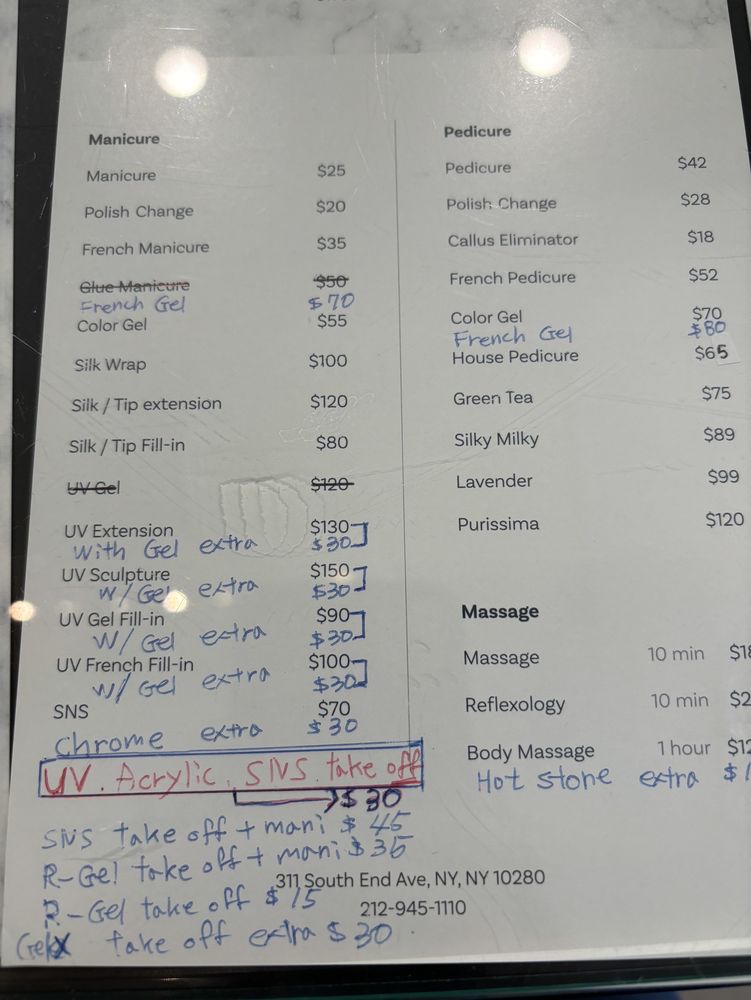 Manicure
Manicure $25
Polish Change $20
French Manicure $35
Glue Manicure $50
French Gel $70
Color Gel $55
Silk Wrap $100
Silk / Tip extension $120
Silk / Tip Fill-in $80
UV Gel $120
UV Extension $130
With Gel extra $30
UV Sculpture $150
W/Gel extra $30
UV Gel Fill-in $90
W/Gel extra $30
UV French Fill-in $100
W/Gel extra $30
SNS $70
Chrome extra $30
UV. Acrylic. SNS. take off
$30
SNS take off + mani $45
R-Gel take off + mani $35
R-Gel take off $15
GelX take off extra $30
Pedicure
Pedicure $42
Polish Change $28
Callus Eliminator $18
French Pedicure $52
Color Gel $70
French Gel $80
House Pedicure $65
Green Tea $75
Silky Milky $89
Lavender $99
Purissima $120
Massage
Massage 10 min
Reflexology 10 min
Body Massage 1 hour
Hot stone extra
311 South End Ave, NY, NY 10280
212-945-1110